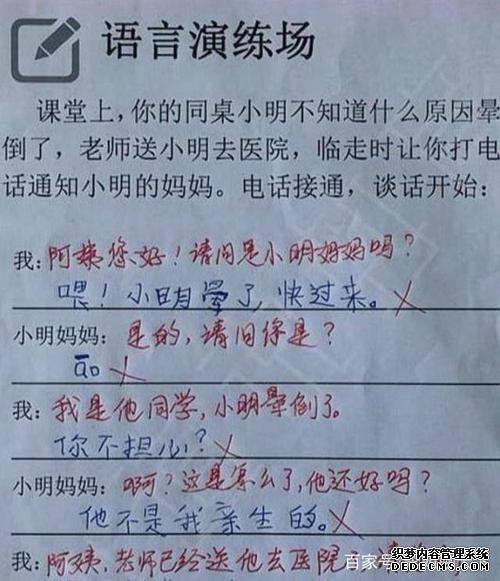 语言演练场
课堂上,你的同桌小明不知道什么原因晕
倒了,老师送小明去医院,临走时让你打电
话通知小明的妈妈。电话接通,谈话开始:
我:阿姨您好!请问是小明妈妈吗?
喂!小明晕了,快过来。×
小明妈妈:是的,请问你是?
āo ×
我:我是他同学,小明晕倒了。
你不担心?×
小明妈妈:啊?这是怎么了,他还好吗?
他不是我亲生的。×
我:阿姨,老师已经送他去医院
百家号
织梦内容管理系统
DEDECMS.COM